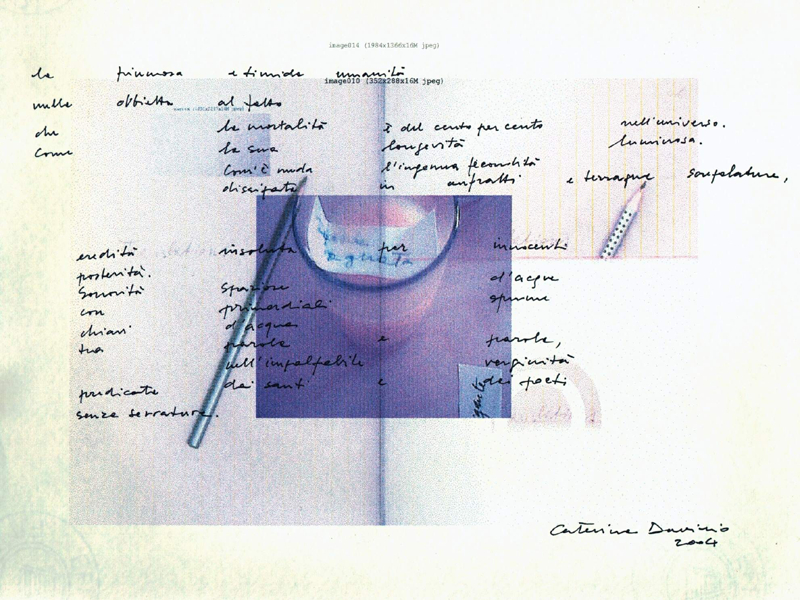 image014 (1984x1366x16M jpeg)
la piumosa e timida umanità
image010 (352x288x16M jpeg)
nulla obbietta al fatto
che la mortalità è del cento per cento nell'universo.
come la sua longevità luminosa.
Com'è nuda l'ingenua fecondità
dissipata in anfratti e terragne screpolature,
eredità insoluta per innocenti
posterità.
Sonorità spaziose d'acque
con primordiali spume
chiari d'acqua
tra parole e parole,
nell'impalpabile verginità
predicata dai santi e dei poeti
senza serrature.
Caterina Davinio
2004